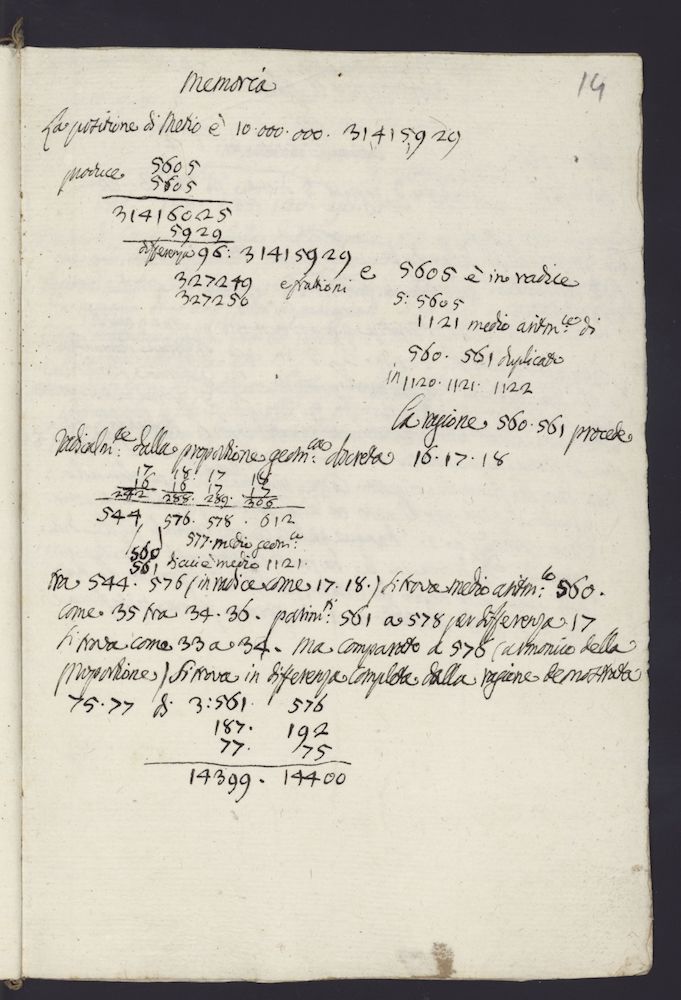 14
Memoria
La positione di Metio è 10.000.000. 31415929
produce 5605
5605
31416025
5929
differenza 96: 31415929
327249 e frationi
327250
e 5605 è in radice
5: 5605
1121 medio aritm:co di
560. 561 duplicato
in 1120. 1121. 1122
La ragione 560. 561 procede
radicalm:te dalla proportione geom:ca discreta 16. 17. 18
17 18. 17 18
16 16 17 17
272 288. 289. 306
544 576. 578. 612
560 577. medio geom:co
561 di cui è medio 1121.
tra 544. 576 (in radice come 17. 18.) si trova medio aritm:co 560.
come 35 tra 34. 36. parim:ti 561 a 578 per differenza 17
si trova come 33 a 34. Ma comparato a 576 (armonico della
proportione) si trova in differenza completa dalla ragione demostrata
75. 77 di 3: 561. 576
187. 192
77. 75
14399. 14400